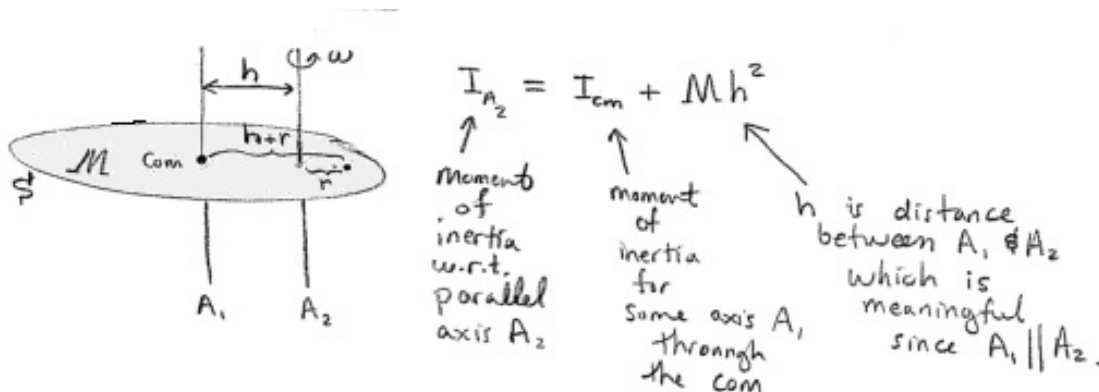 h
ω
h+r
M
Com
r
A₁
A₂
I_A₂ = I_cm + Mh²
moment
of
inertia
w.r.t.
parallel
axis A₂
moment
of
inertia
for
some axis A₁
through
the com
h is distance
between A₁ & A₂
which is
meaningful
since A₁ || A₂.